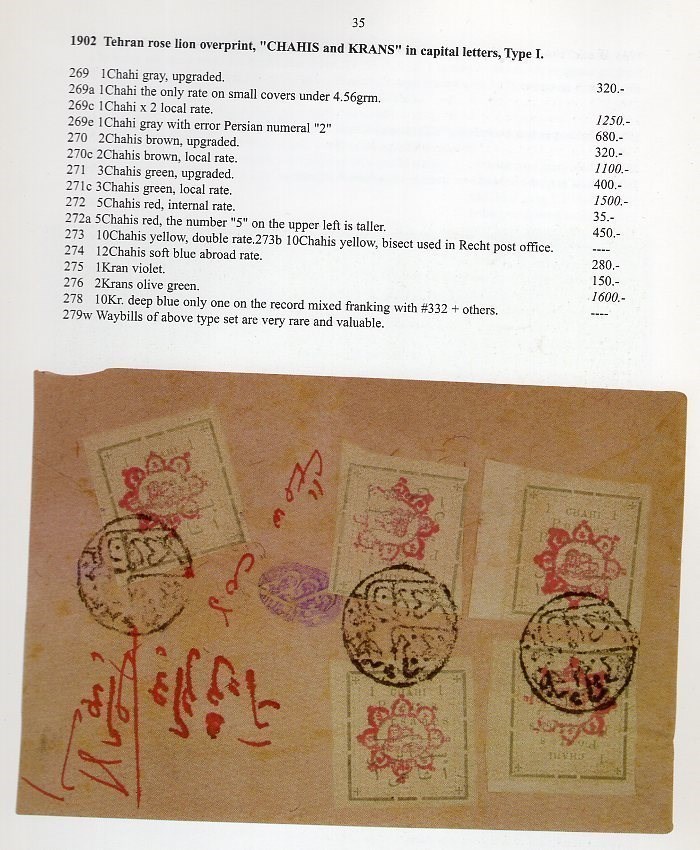 35
1902 Tehran rose lion overprint, "CHAHIS and KRANS" in capital letters, Type I.
269 1Chahi gray, upgraded. 320.-
269a 1Chahi the only rate on small covers under 4.56grm.
269c 1Chahi x 2 local rate. 1250.-
269e 1Chahi gray with error Persian numeral "2" 680.-
270 2Chahis brown, upgraded. 320.-
270c 2Chahis brown, local rate. 1100.-
271 3Chahis green, upgraded. 400.-
271c 3Chahis green, local rate. 1500.-
272 5Chahis red, internal rate. 35.-
272a 5Chahis red, the number "5" on the upper left is taller. 450.-
273 10Chahis yellow, double rate.273b 10Chahis yellow, bisect used in Recht post office. ----
274 12Chahis soft blue abroad rate. 280.-
275 1Kran violet. 150.-
276 2Krans olive green. 1600.-
278 10Kr. deep blue only one on the record mixed franking with #332 + others. ----
279w Waybills of above type set are very rare and valuable.
1 CHAHI 1
1 CHAHI 1
CHAHI